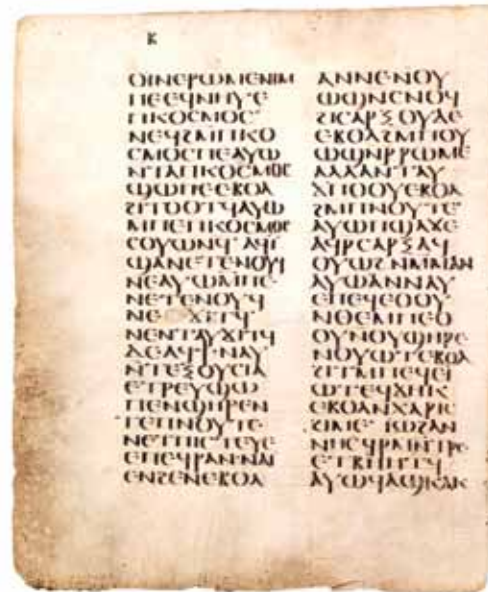 ⲕ
ⲟⲓⲛⲉⲣⲱⲙⲉⲛⲓⲙ
ⲡⲉⲉϥⲛⲏⲩⲉ
ⲡⲕⲟⲥⲙⲟⲥ
ⲛⲉϥϩⲙⲡⲕⲟ
ⲥⲙⲟⲥⲡⲉⲁⲩⲱ
ⲛⲧⲁⲡⲕⲟⲥⲙⲟⲥ
ϣⲱⲡⲉⲉⲃⲟⲗ
ϩⲓⲧⲟⲟⲧϥⲁⲩⲱ
ⲙⲡⲉⲡⲕⲟⲥⲙⲟⲥ
ⲥⲟⲩⲱⲛϥ·ⲁϥⲓ
ϣⲁⲛⲉⲧⲉⲛⲟⲩϥ
ⲛⲉⲁⲩⲱⲙⲡⲉ
ⲛⲉⲧⲉⲛⲟⲩϥ
ⲛⲉ ϫⲓⲧϥ
ⲛⲉⲛⲧⲁⲩϫⲓⲧϥ
ⲇⲉⲁϥϯⲛⲁⲩ
ⲛⲧⲉⲝⲟⲩⲥⲓⲁ
ⲉⲧⲣⲉⲩϣⲱ
ⲡⲉⲛϣⲏⲣⲉⲛ
ⲧⲉⲡⲛⲟⲩⲧⲉ
ⲛⲉⲧⲡⲓⲥⲧⲉⲩⲉ
ⲉⲡⲉϥⲣⲁⲛ·ⲛⲁⲓ
ⲉⲛϩⲉⲛⲉⲃⲟⲗ
ⲁⲛⲛⲉⲛⲟⲩ
ⲱϣⲛⲥⲛⲟϥ
ϩⲓⲥⲁⲣⲝⲟⲩⲇⲉ
ⲉⲃⲟⲗϩⲙⲡⲟⲩ
ⲱϣⲛⲣⲣⲱⲙⲉ
ⲁⲗⲗⲁⲛⲧⲁⲩ
ϫⲡⲟⲟⲩⲉⲃⲟⲗ
ϩⲙⲡⲛⲟⲩⲧⲉ
ⲁⲩⲱⲡϣⲁϫⲉ
ⲁϥⲣⲥⲁⲣⲝⲁϥ
ⲟⲩⲱϩⲛⲙⲙⲁⲛ
ⲁⲩⲱⲁⲛⲛⲁⲩ
ⲉⲡⲉϥⲉⲟⲟⲩ
ⲛⲑⲉⲙⲡⲉⲟ
ⲟⲩⲛⲟⲩϣⲏⲣⲉ
ⲛⲟⲩⲱⲧⲉⲃⲟⲗ
ϩⲓⲧⲙⲡⲉϥⲉⲓ
ⲱⲧⲉϥϫⲏⲕ
ⲉⲃⲟⲗⲛⲭⲁⲣⲓⲥ
ϩⲓⲙⲉ·ⲓⲱϩⲁⲛ
ⲛⲏⲥϥⲣⲙⲛⲧⲣⲉ
ⲉⲧⲃⲏⲏⲧϥ
ⲁⲩⲱϥⲁϣⲕⲁⲕ